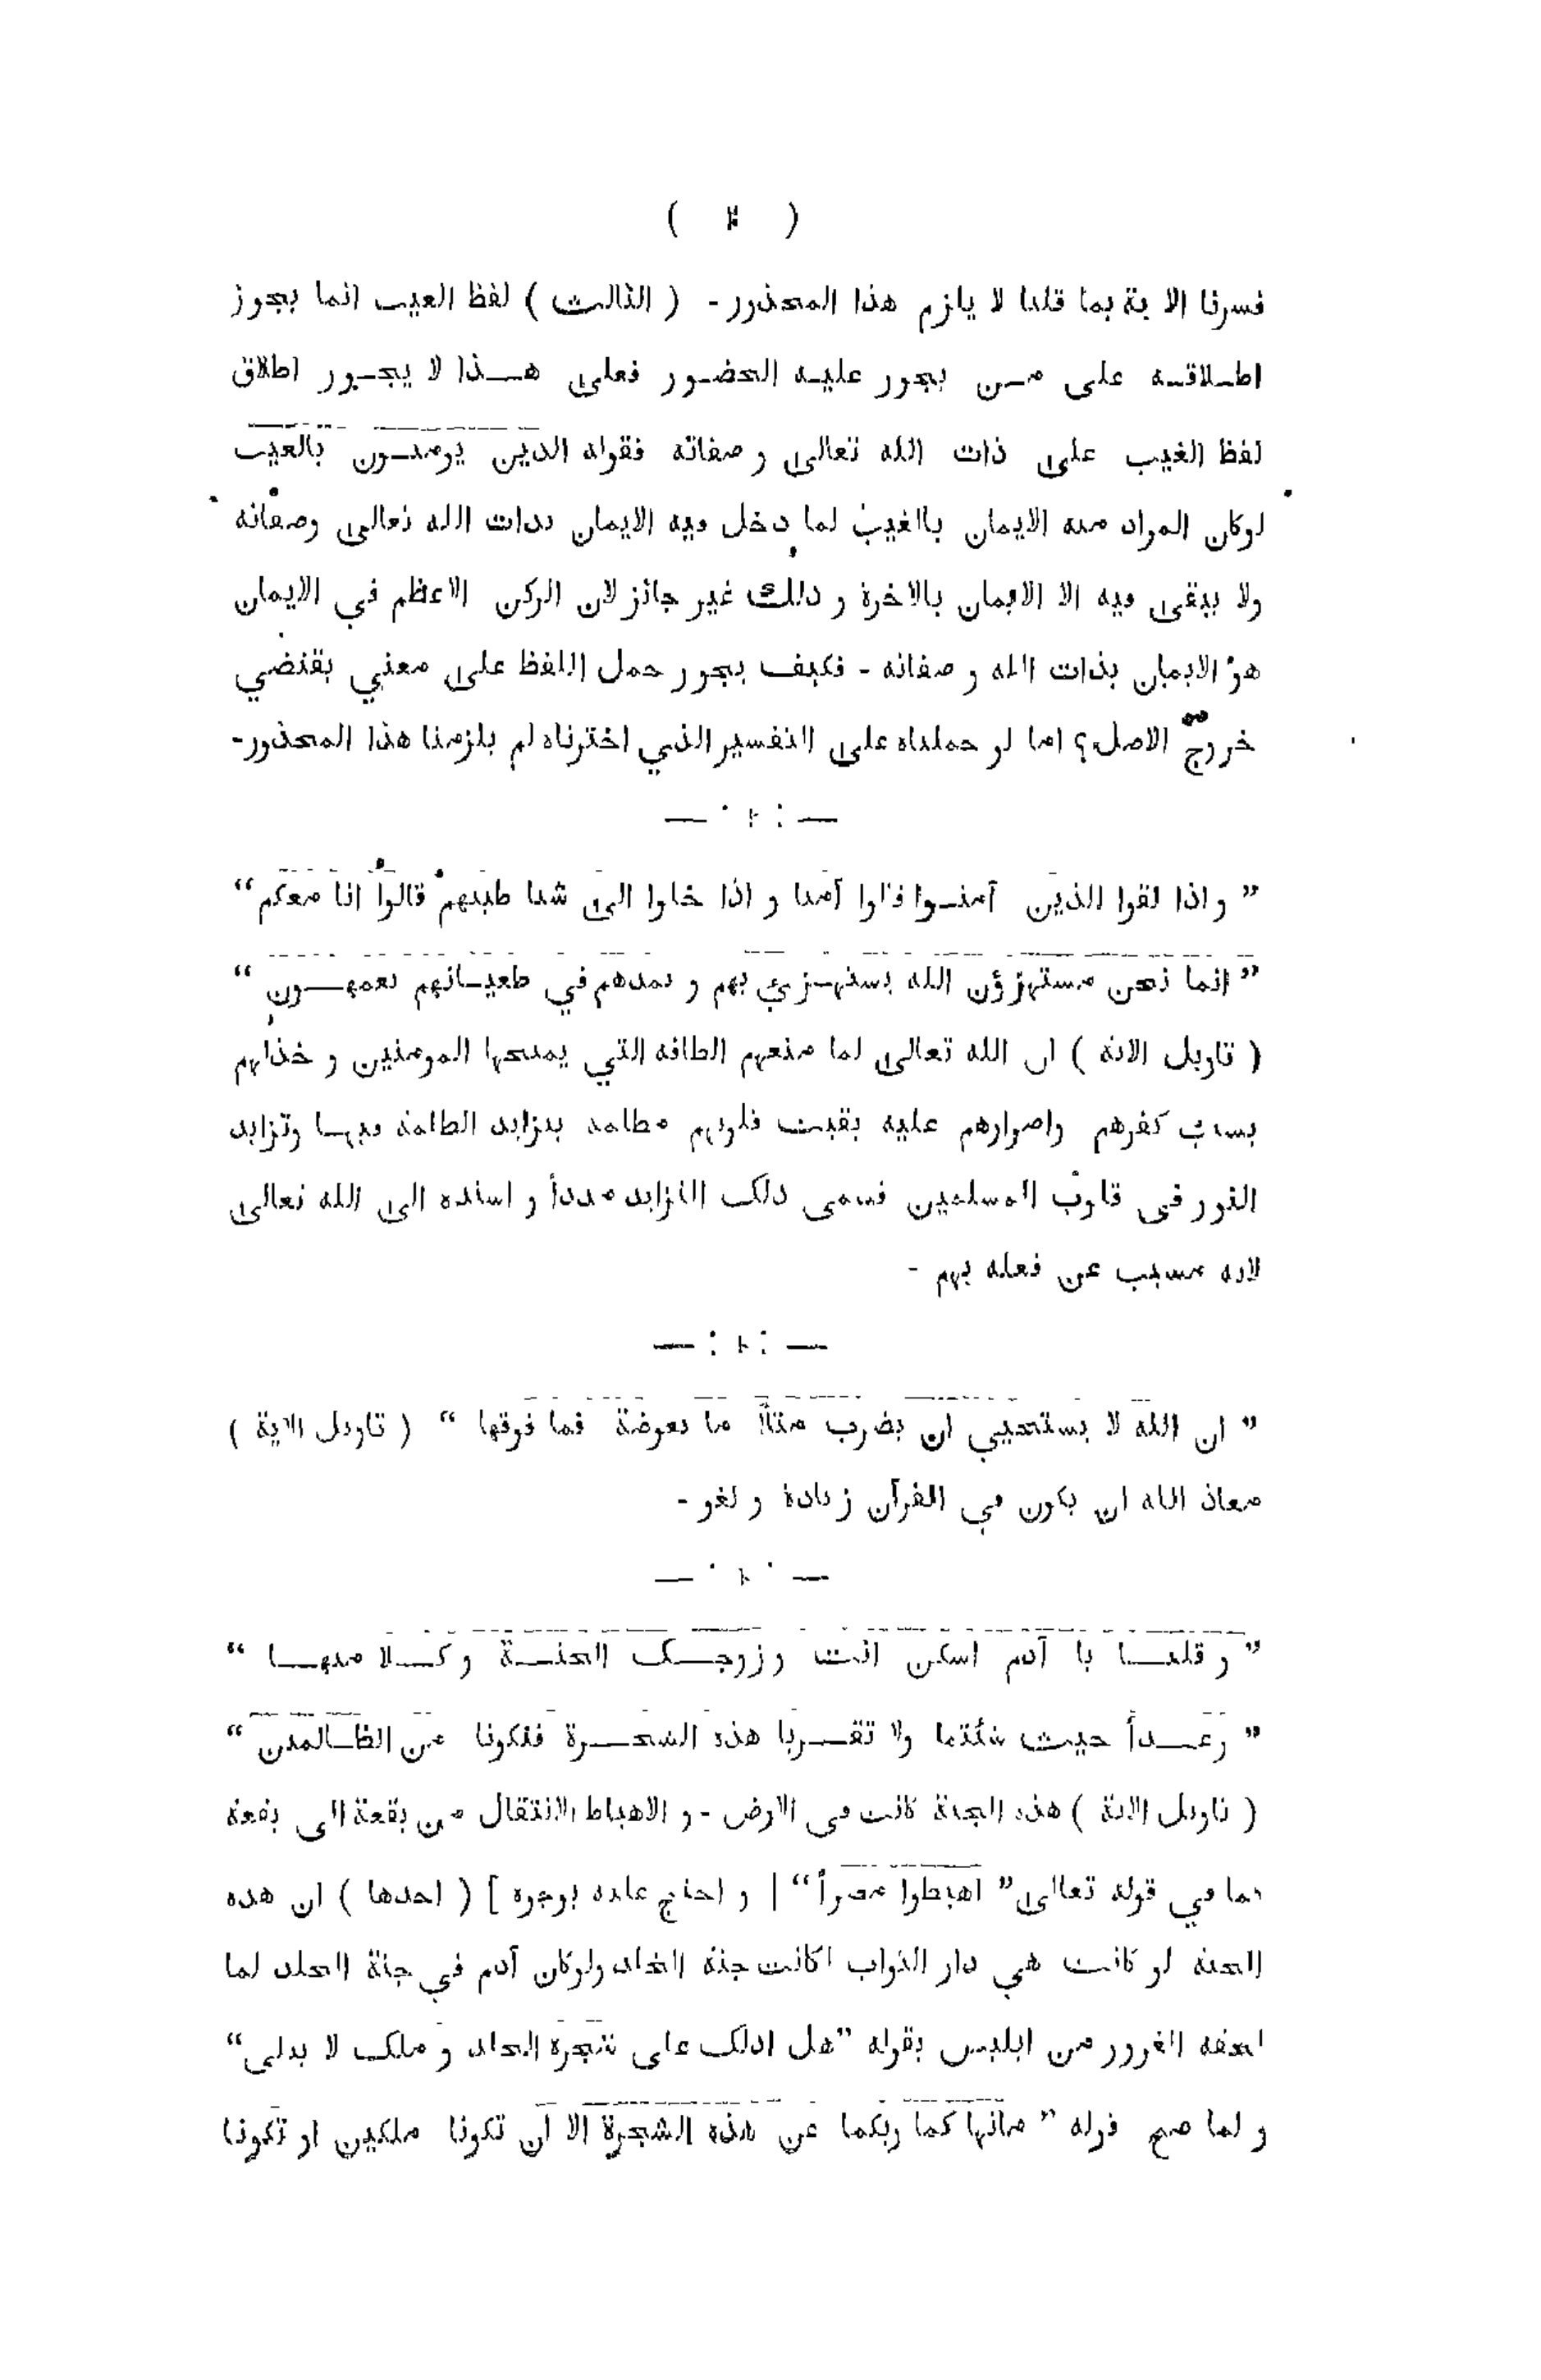 فسرنا الاية بما قلنا لا يلزم هذا المحذور - ( الثالث ) لفظ الغيب انما يجوز
اطلاقه على من يجوز عليه الحضور فعلى هذا لا يجوز اطلاق
لفظ الغيب على ذات الله تعالى و صفاته فقوله الذين يومنون بالغيب
لوكان المراد منه الايمان بالغيب لما دخل فيه الايمان بذات الله تعالى وصفاته
ولا يبقى فيه الا الايمان بالاخرة و ذلك غير جائز لان الركن الاعظم في الايمان
هو الايمان بذات الله و صفاته - فكيف يجوز حمل اللفظ على معني يقتضي
خروج الاصل؟ اما لو حملناه على التفسير الذي اخترناه لم يلزمنا هذا المحذور-
” و اذا لقوا الذين آمنوا قالوا آمنا و اذا خلوا الى شيا طينهم قالوا انا معكم “
” انما نحن مستهزؤن الله يستهزئ بهم و يمدهم في طغيانهم يعمهون “
( تاويل الاية ) ان الله تعالى لما منعهم الطافه التي يمنحها المومنين و خذلهم
بسبب كفرهم واصرارهم عليه بقيت قلوبهم مظلمة بتزايد الظلمة فيها وتزايد
النور في قلوب المسلمين فسمى ذلك التزايد مدداً و اسنده الى الله تعالى
لانه مسبب عن فعله بهم -
” ان الله لا يستحيي ان يضرب مثلاً ما بعوضة فما فوقها “ ( تاويل الاية )
معاذ الله ان يكون في القرآن زيادة و لغو -
” و قلنا يا آدم اسكن انت و زوجك الجنة و كلا منها “
” رغداً حيث شئتما ولا تقربا هذه الشجرة فتكونا من الظالمين “
( تاويل الاية ) هذه الجنة كانت في الارض - و الاهباط الانتقال من بقعة الى بقعة
كما في قوله تعالى ” اهبطوا مصراً “ [ و احتج عليه بوجوه ] ( احدها ) ان هذه
الجنة لو كانت هي دار الثواب لكانت جنة الخلد ولوكان آدم في جنة الخلد لما
لحقه الغرور من ابليس بقوله ” هل ادلك على شجرة الخلد و ملك لا يبلى “
و لما صح قوله ” ما نها كما ربكما عن هذه الشجرة الا ان تكونا ملكين او تكونا